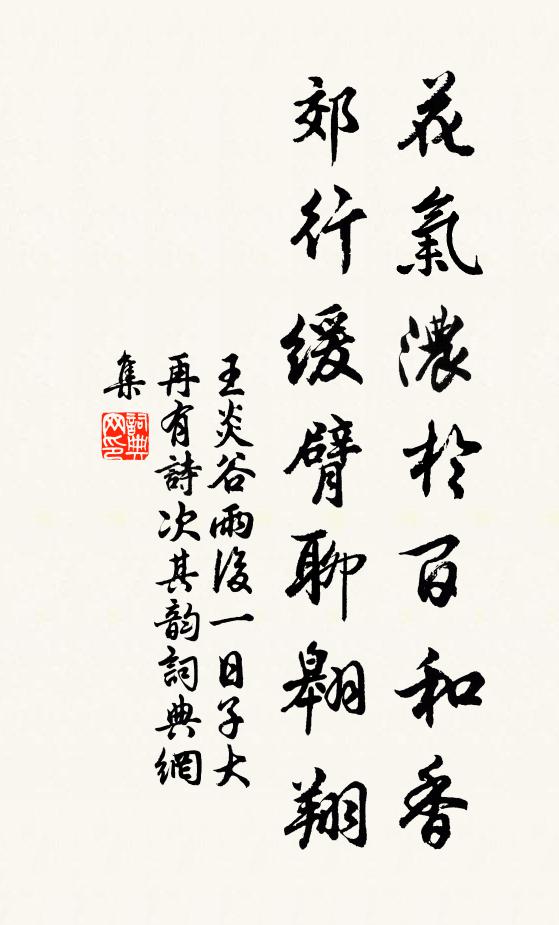 花氣濃於百和香
郊行緩臂聊翱翔
王炎谷雨後一日子大
再有詩次其韵詞典網
集
詞典
网印